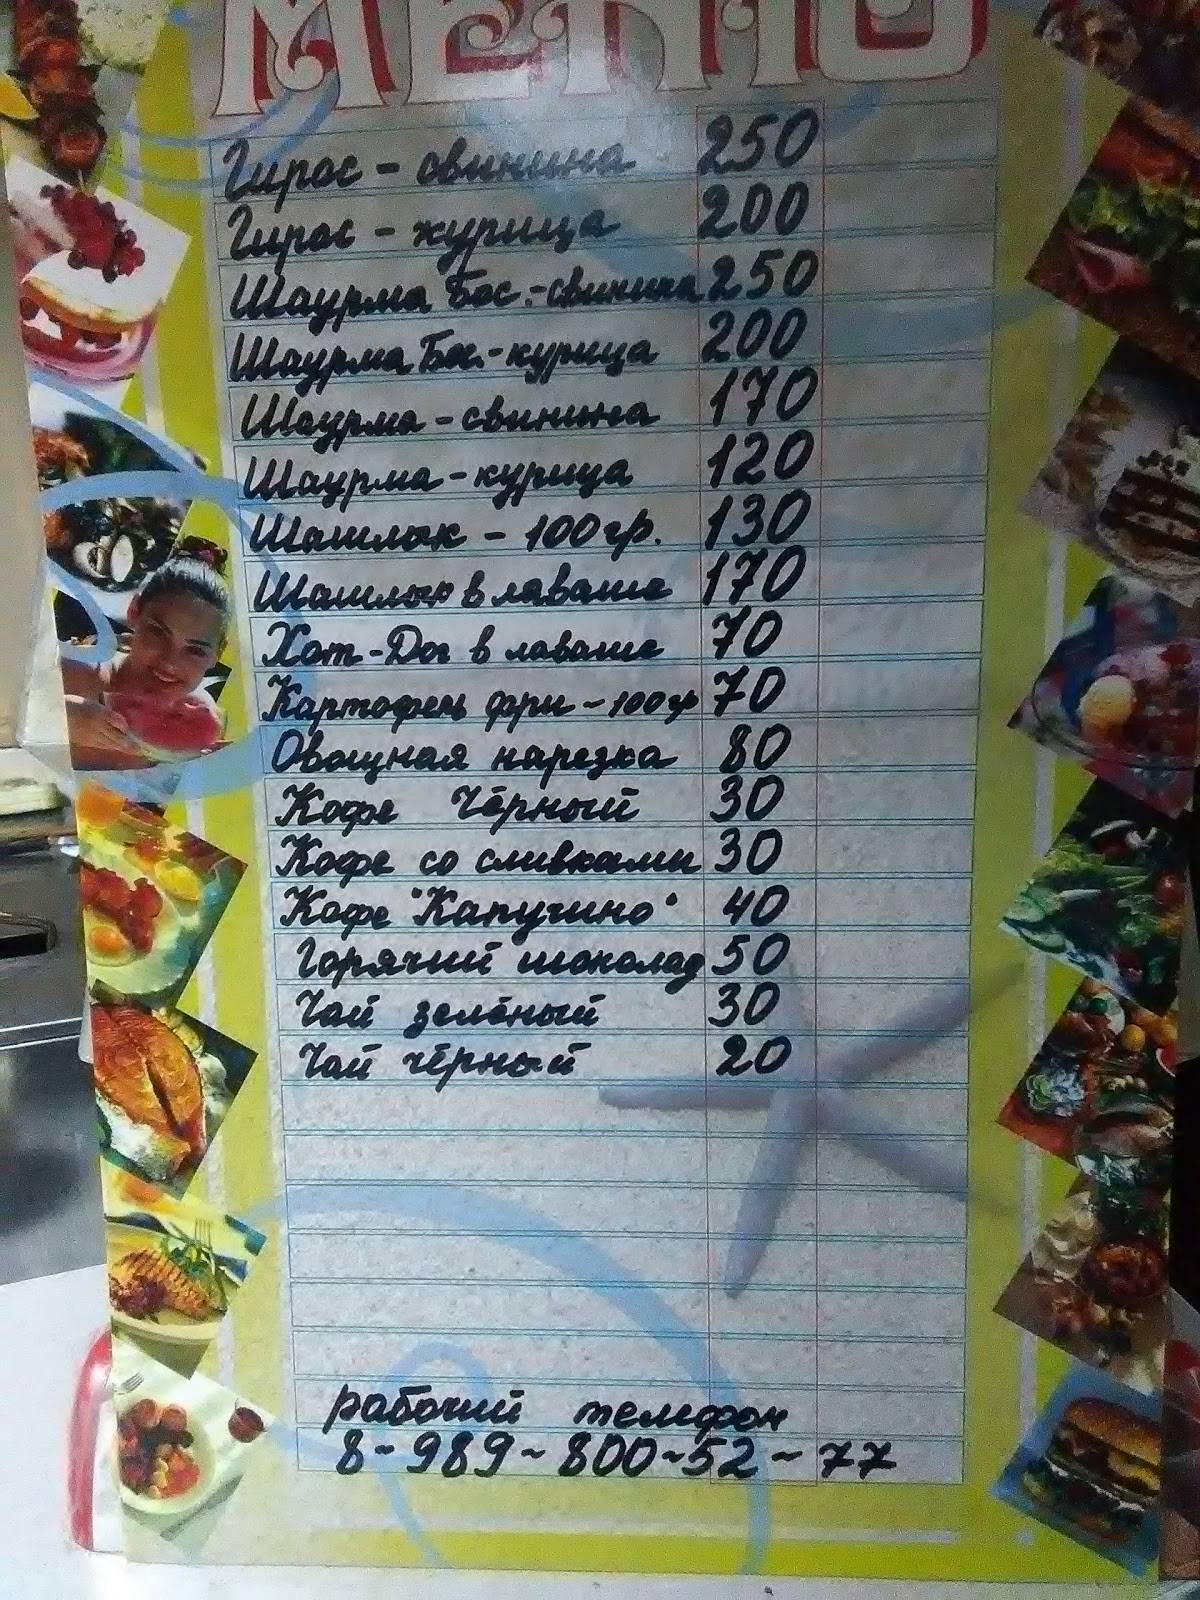 МЕНЮ
Гирос - свинина 250
Гирос - курица 200
Шаурма Бос.-свинина 250
Шаурма Бос.-курица 200
Шаурма-свинина 170
Шаурма-курица 120
Шашлык - 100гр. 130
Шашлык в лаваше 170
Хот-Дог в лаваше 70
Картофель фри - 100гр 70
Овощная нарезка 80
Кофе Чёрный 30
Кофе со сливками 30
Кофе "Капучино" 40
Горячий шоколад 50
Чай зелёный 30
Чай чёрный 20
рабочий телефон
8-989-800-52-77